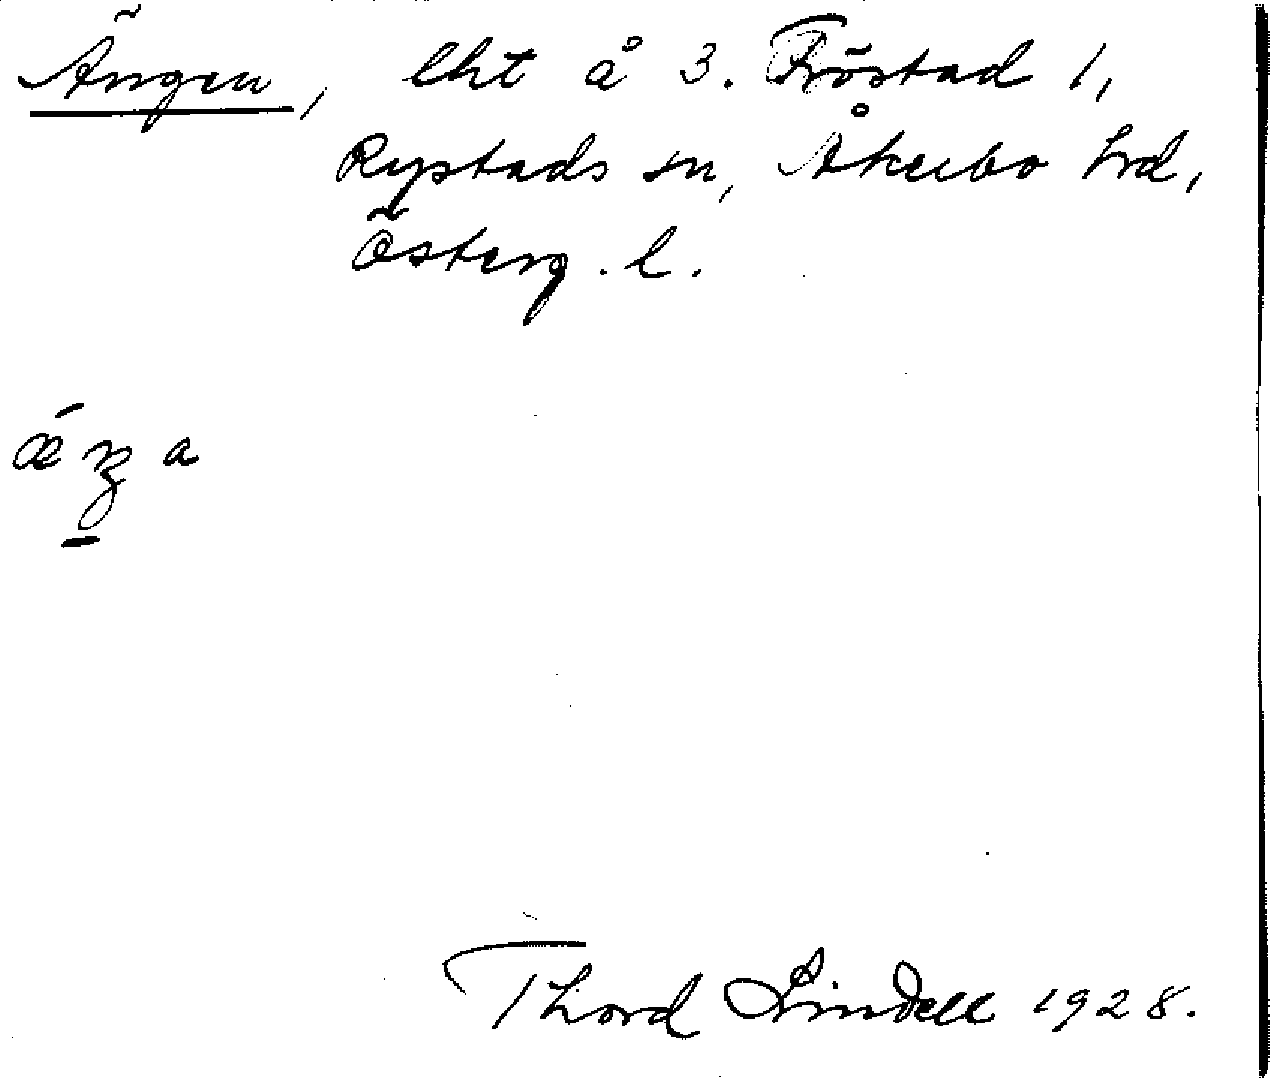 Ängen, lht å 3. Fröstad 1,
Rystads sn, Åkerbo hd,
Österg. l.
ǽŋa
Thord Lindell 1928.